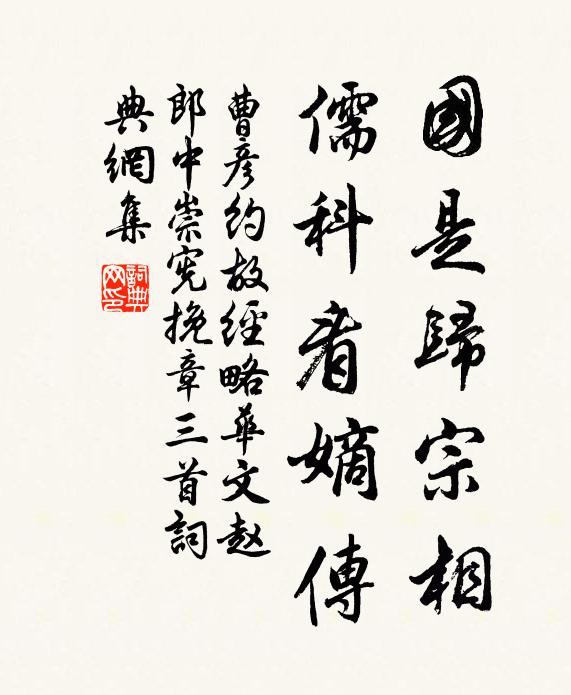 國是歸宗相
儒科看嫡傳
曹彥約故經略華文赵
郎中崇宪挽章三首詞
典網集
詞典
网印